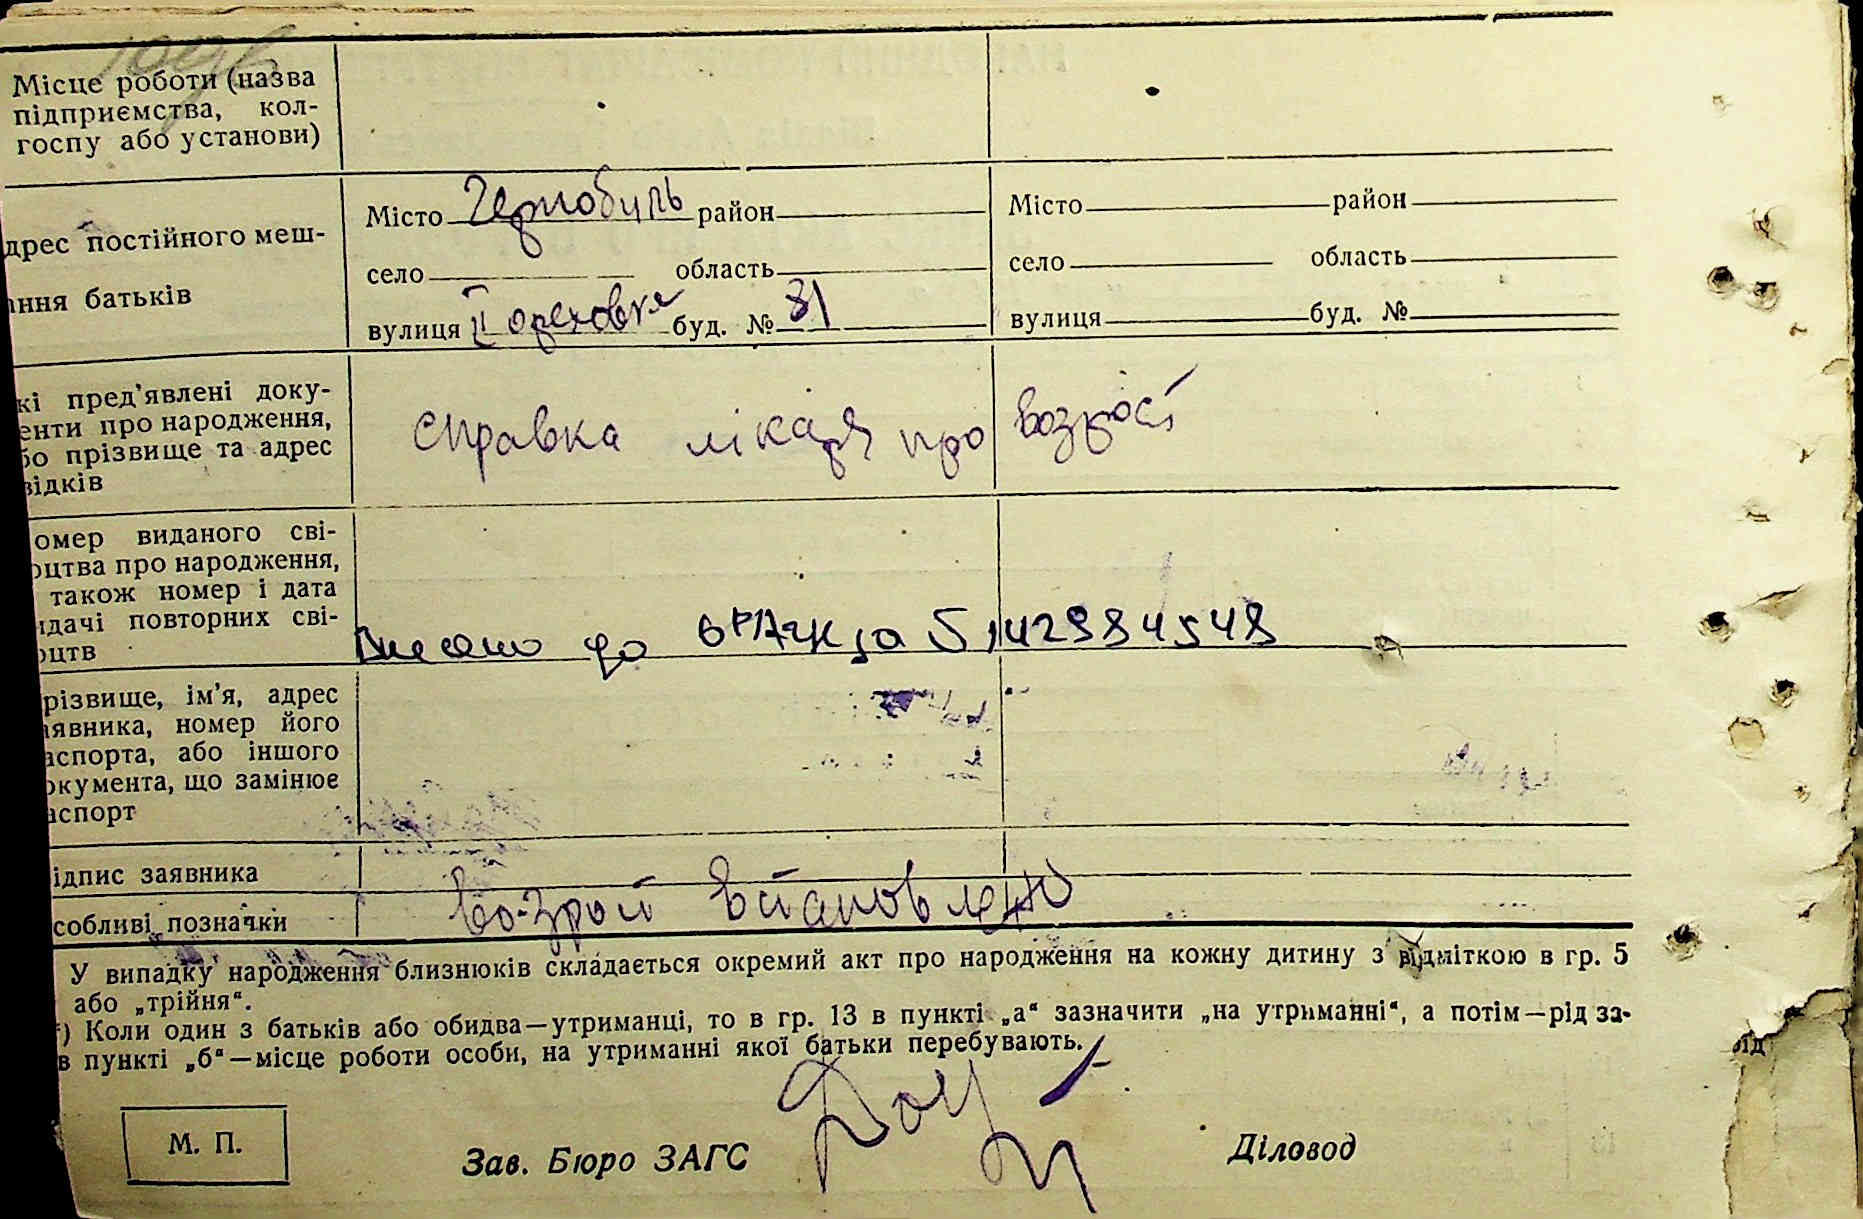 Місце роботи (назва
підприємства, кол-
госпу або установи)
дрес постійного меш-
ання батьків
Місто Чернобиль район
село область
вулиця II ореховка буд. № 81
Місто район
село область
вулиця буд. №
кі пред'явлені доку-
енти про народження,
бо прізвище та адрес
відків
справка лікаря про возрост
омер виданого сві-
оцтва про народження,
також номер і дата
идачі повторних сві-
оцтв
Внесано до за
різвище, ім'я, адрес
аявника, номер його
аспорта, або іншого
окумента, що замінює
аспорт
ідпис заявника
собливі позначки
возрост встановлено
У випадку народження близнюків складається окремий акт про народження на кожну дитину з відміткою в гр. 5
або „трійня“.
) Коли один з батьків або обидва—утриманці, то в гр. 13 в пункті „а“ зазначити „на утриманні“, а потім—рід за-
в пункті „б“—місце роботи особи, на утриманні якої батьки перебувають.
М. П.
Зав. Бюро ЗАГС
Діловод